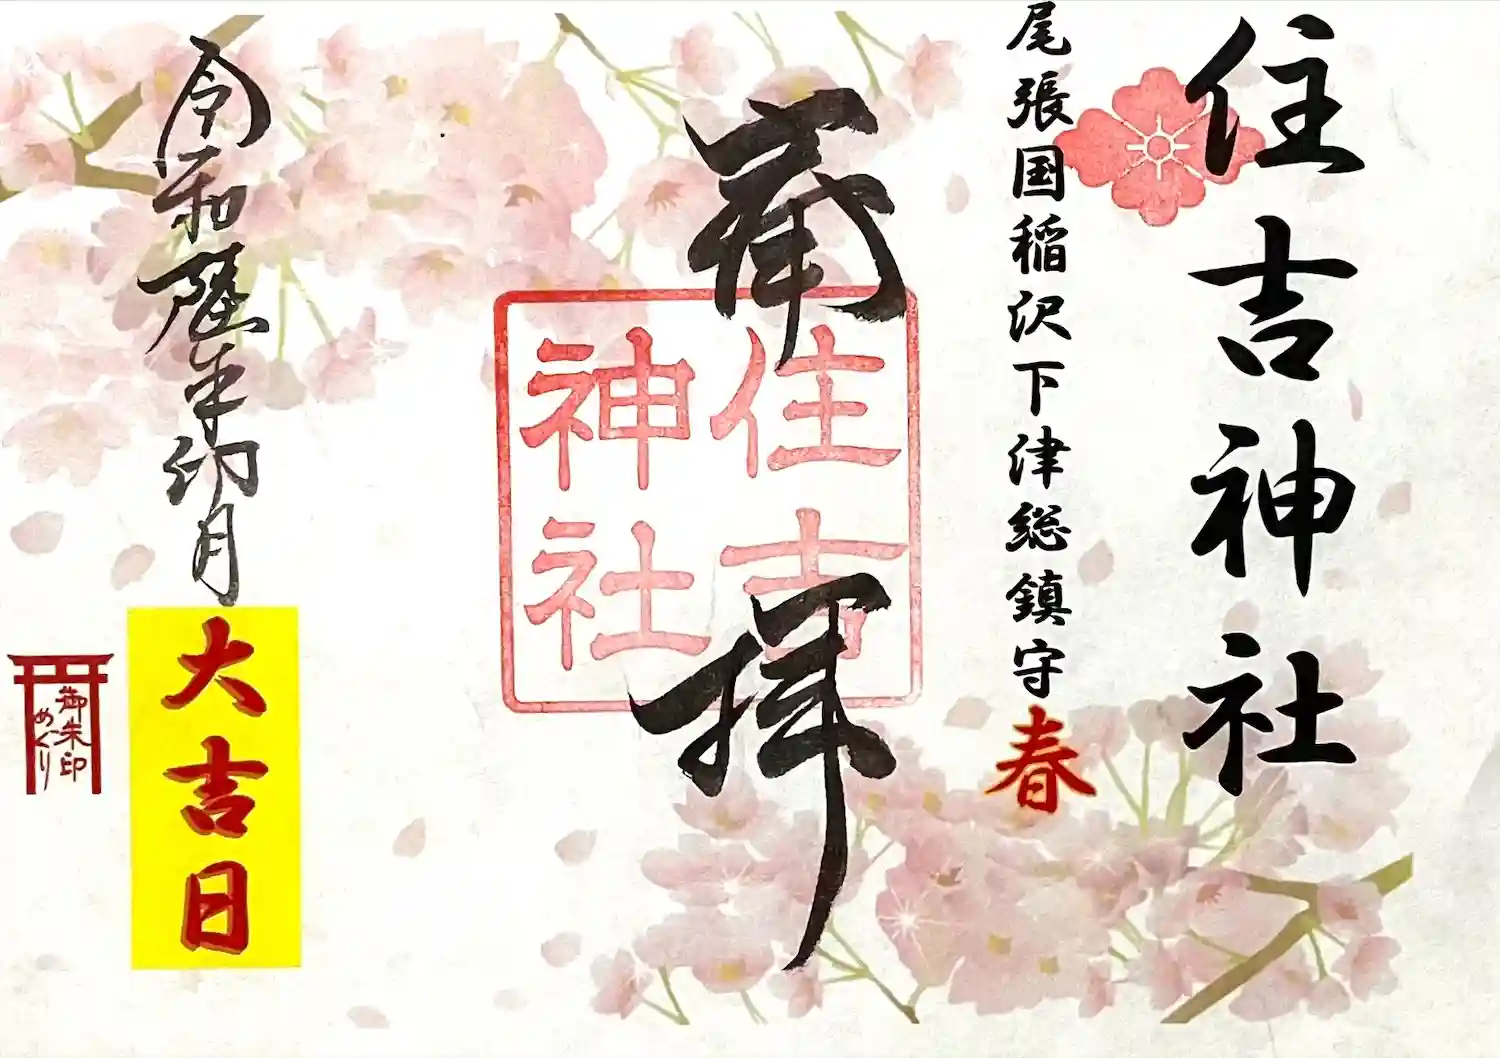 住吉神社
尾張国稲沢下津総鎮守
春
奉拝
住吉
神社
令和年卯月
大吉日
御朱印
めぐり